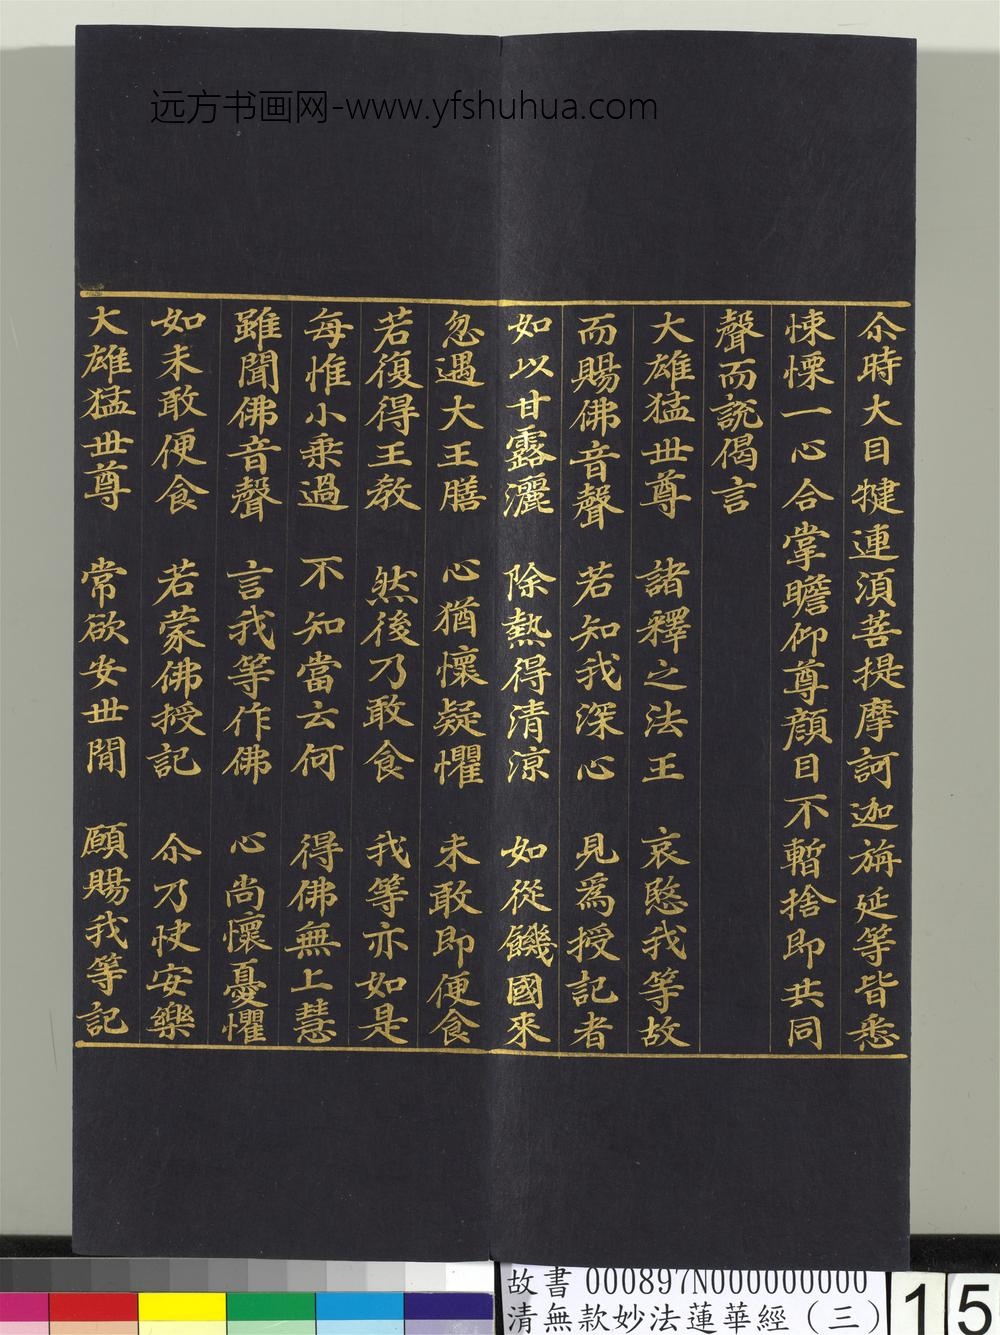 远方书画网-www.yfshuhua.com
尒時大目犍連須菩提摩訶迦旃延等皆悉
悚慄一心合掌瞻仰尊顔目不暫捨即共同
聲而説偈言
大雄猛世尊　諸釋之法王　哀愍我等故
而賜佛音聲　若知我深心　見爲授記者
如以甘露灑　除熱得清涼　如從饑國來
忽遇大王膳　心猶懷疑懼　未敢即便食
若復得王教　然後乃敢食　我等亦如是
每惟小乘過　不知當云何　得佛無上慧
雖聞佛音聲　言我等作佛　心尚懷憂懼
如未敢便食　若蒙佛授記　尒乃快安樂
大雄猛世尊　常欲安世間　願賜我等記
故書 000897N000000000
清無款妙法蓮華經（三）
15